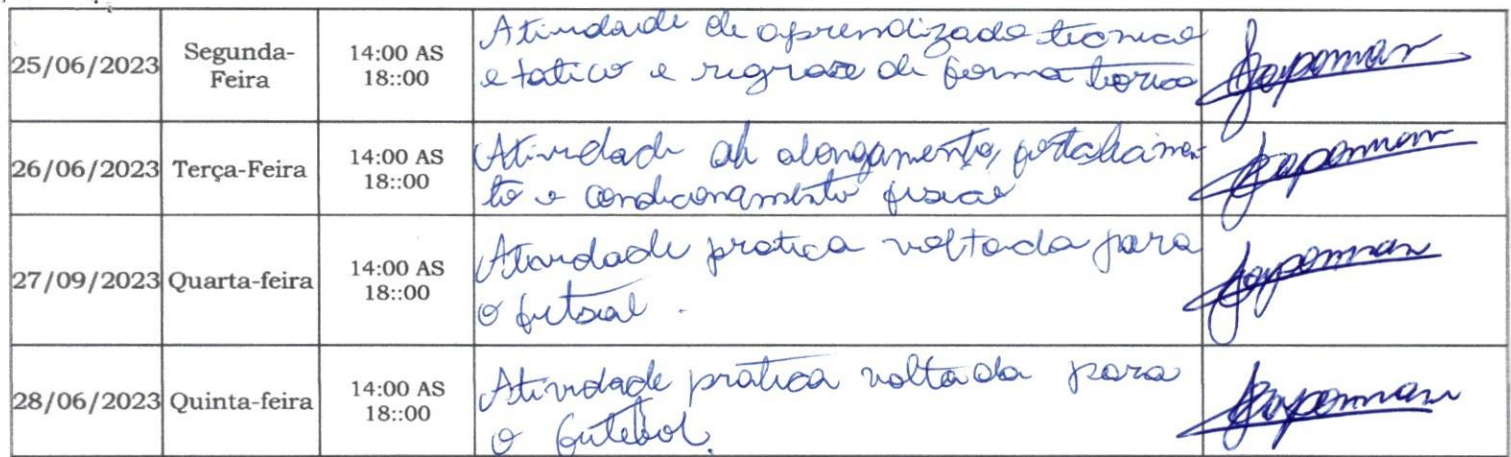 25/06/2023 Segunda-Feira 14:00 AS 18::00 Atividade de aprendizado tecnico
e tatico e regras de forma teorica
26/06/2023 Terça-Feira 14:00 AS 18::00 Atividade de alongamento, fortalecimen-
to e condicionamento fisico
27/09/2023 Quarta-feira 14:00 AS 18::00 Atividade pratica voltada para
o futsal.
28/06/2023 Quinta-feira 14:00 AS 18::00 Atividade pratica voltada para
o futebol.